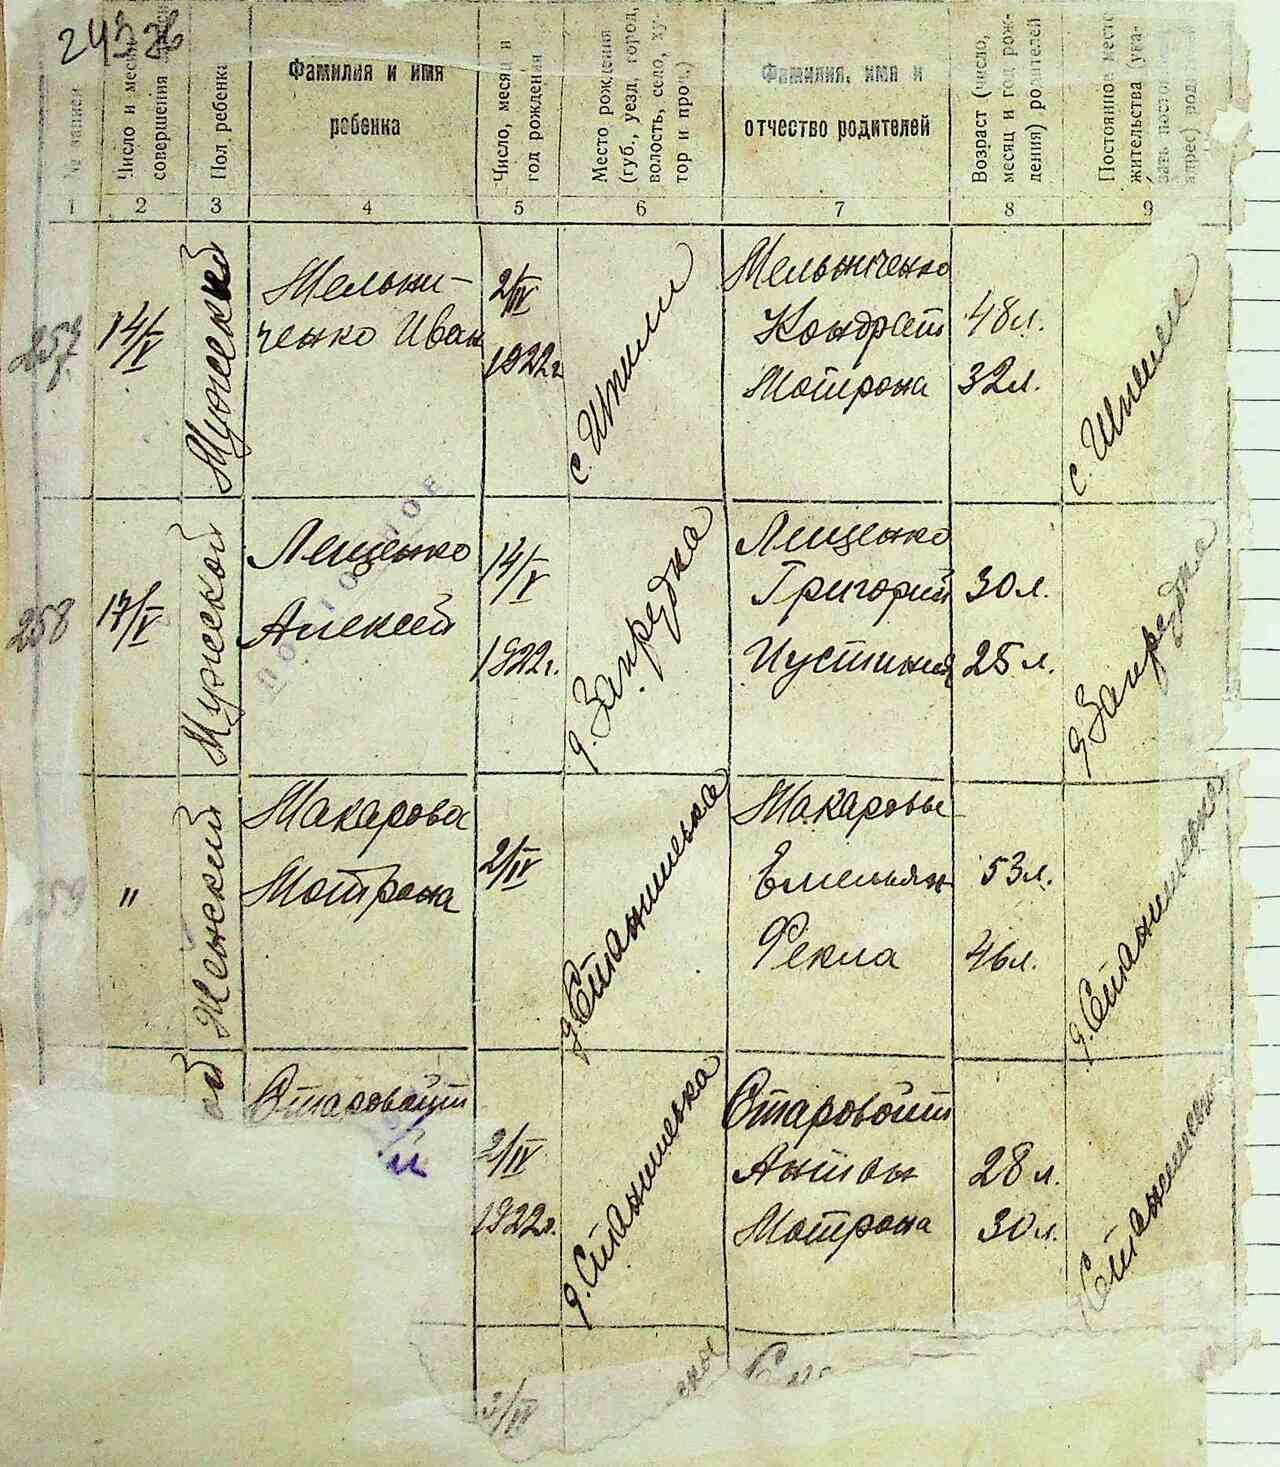 № записи
Число и месяц совершения записи
Пол ребенка
Фамилия и имя
ребенка
Число, месяц и
год рождения
Место рождения
(губ., уезд, город,
волость, село, ху-
тор и проч.)
Фамилия, имя и
отчество родителей
Возраст (число,
месяц и год рож-
дения) родителей
Постоянное место
жительства (ука-
зать постоян
адрес) род
1 2 3 4 5 6 7 8 9
257
14/V
Мужеский
Мельни-
ченко Иван
2/IV
1922г.
с. Шпили
Мельниченко
Кондрат 48л.
Мотрона 32л.
с. Шпили
258
17/V
Мужеской
Лещенко
Алексей
14/V
1922г.
д. Запрудка
Лещенко
Григорий 30л.
Иустиния 25л.
д. Запрудка
ПОВТОРНОЕ
259
"
Женский
Макарова
Мотрона
2/IV
д. Станишевка
Макаровы
Емельян 53л.
Фекла 46л.
д. Станишевка
ой
Старовойт
2/IV
1922г.
д. Станишевка
Старовойт
Антон 28л.
Мотрона 30л.
Станишевка